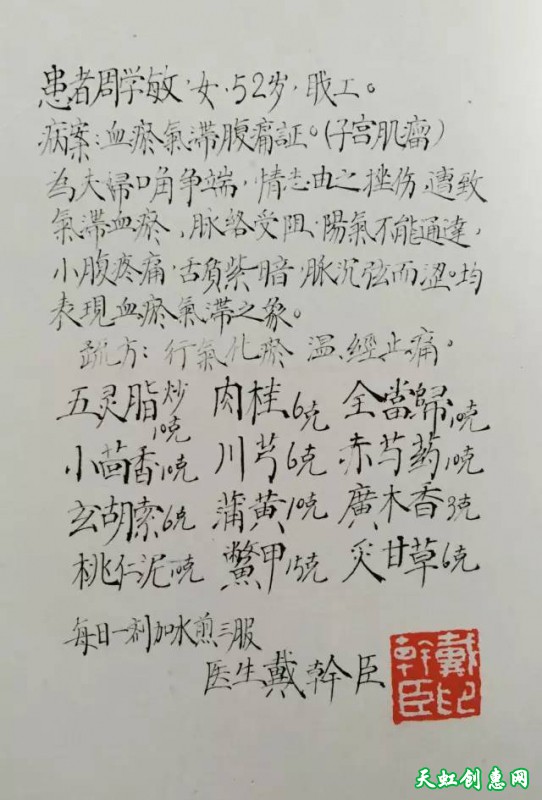 患者周学敏,女,52岁,职工。
病案:血瘀氣滞腹痛証。(子宫肌瘤)
為夫婦口角争端,情志由之挫伤,遭致
氣滞血瘀,脉络受阻,陽氣不能通達,
小腹疼痛,舌質紫暗,脉沉弦而涩。均
表現血瘀氣滞之象。
疏方:行氣化瘀 温經止痛。
五灵脂炒10克 肉桂6克 全當歸10克
小茴香10克 川芎6克 赤芍药10克
玄胡索6克 蒲黄10克 廣木香3克
桃仁泥10克 鱉甲15克 炙甘草6克
每日一剂加水煎三服
医生戴幹臣
戴印
幹臣
天虹创惠网